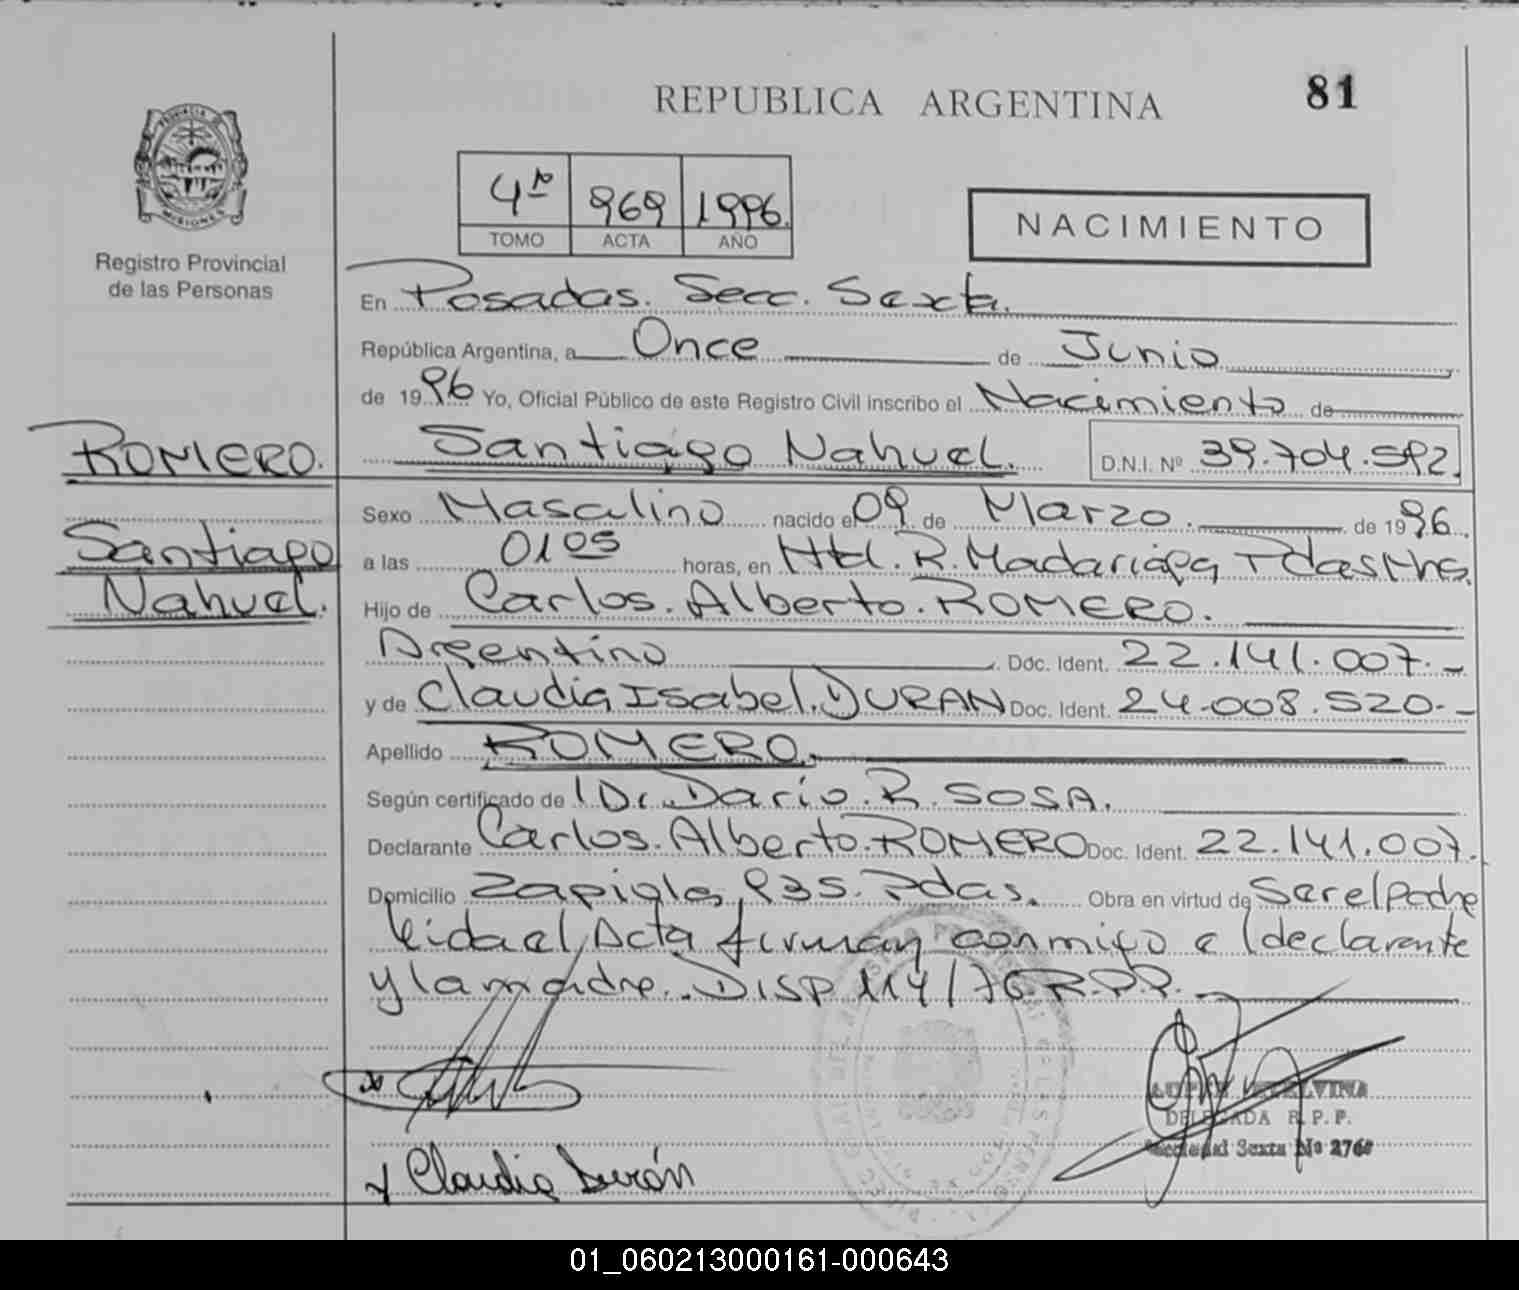 REPUBLICA ARGENTINA
81
PROVINCIA DE
MISIONES
Registro Provincial
de las Personas
4º 969 1996.
TOMO ACTA AÑO
NACIMIENTO
En Posadas. Secc. Sexta.
República Argentina, a Once de Junio
de 1996 Yo, Oficial Público de este Registro Civil inscribo el Nacimiento de
Santiago Nahuel. D.N.I. Nº 39.704.592.
ROMERO.
Santiago
Nahuel.
Sexo Masculino nacido el 09 de Marzo. de 1996.
a las 0105 horas, en Htal. R. Madariaga Pdas Mnes.
Hijo de Carlos. Alberto. ROMERO.
Argentino Doc. Ident. 22.141.007.-
y de Claudia Isabel. DURAN Doc. Ident. 24.008.520.-
Apellido ROMERO.
Según certificado de Dr. Dario. R. SOSA.
Declarante Carlos. Alberto. ROMERO Doc. Ident. 22.141.007.
Domicilio Zapiola 935. Pdas. Obra en virtud de Ser el Padre
Leida el Acta firman conmigo el declarante
y la madre. Disp 114/76 R.P.P.
DELEGADA R.P.P.
Seccional Sexta Nº 2760
Claudia Durán
01_060213000161-000643